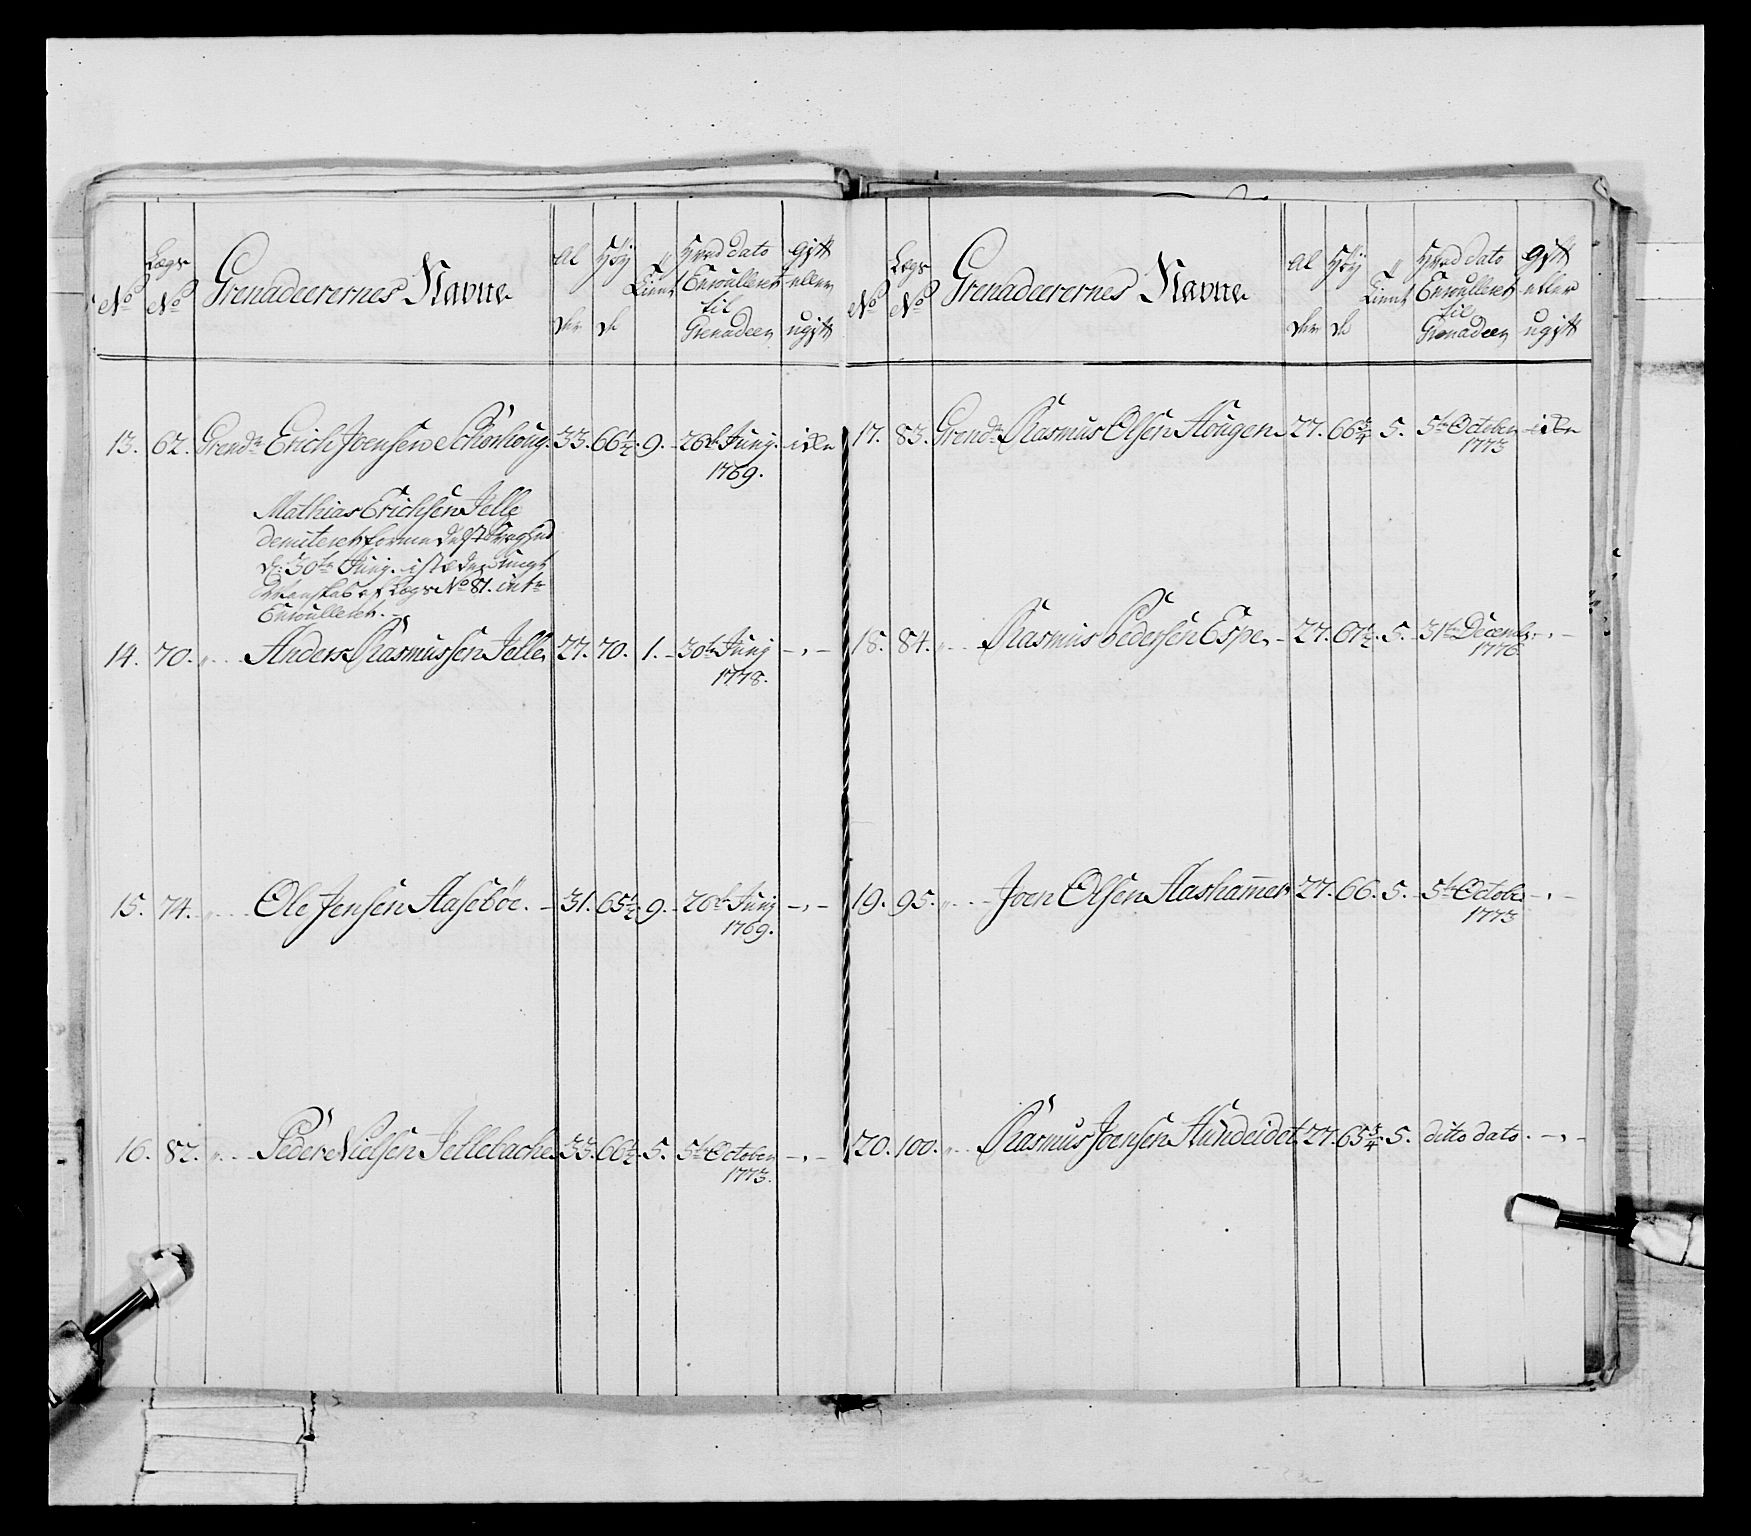 No
Lægs No
Grenadeerernes Navne
Al der
Høy de
Tient
Hvad dato Enroulleret til Grenadeer
gift eller ugift
13. 62. Grendr Erich Joensen 33. 66½. 9. 26de Junj. 1769.
Mathias Erichsen Jelle
30te Junj. Lægs No 81.
Enroulleret.
14. 70. " Anders Rasmussen Jelle 27. 70. 1. 30te Junj 1778. -,-
15. 74. " Ole Jensen Aasebøe. 31. 65½. 9. 26de Junj 1769. -,-
16. 82. " Peder Nielsen Jellebache 33. 66½. 5. 5te October 1773. -,-
No
Lægs No
Grenadeerernes Navne
Al der
Høy de
Tient
Hvad dato Enroulleret til Grenadeer
gift eller ugift
17. 83. Grendr Rasmus Olsen Hougen 27. 66¾. 5. 5te October 1773
18. 84. " Rasmus Pedersen Espe 27. 67½. 5. 31te Decembr 1776. -,-
19. 95. " Joen Olsen Aashammer 27. 66. 5. 5te Octobr 1773 -,-
20. 100. " Rasmus Joensen Hundeidet 27. 65¾. 5. ditto dato. -,-